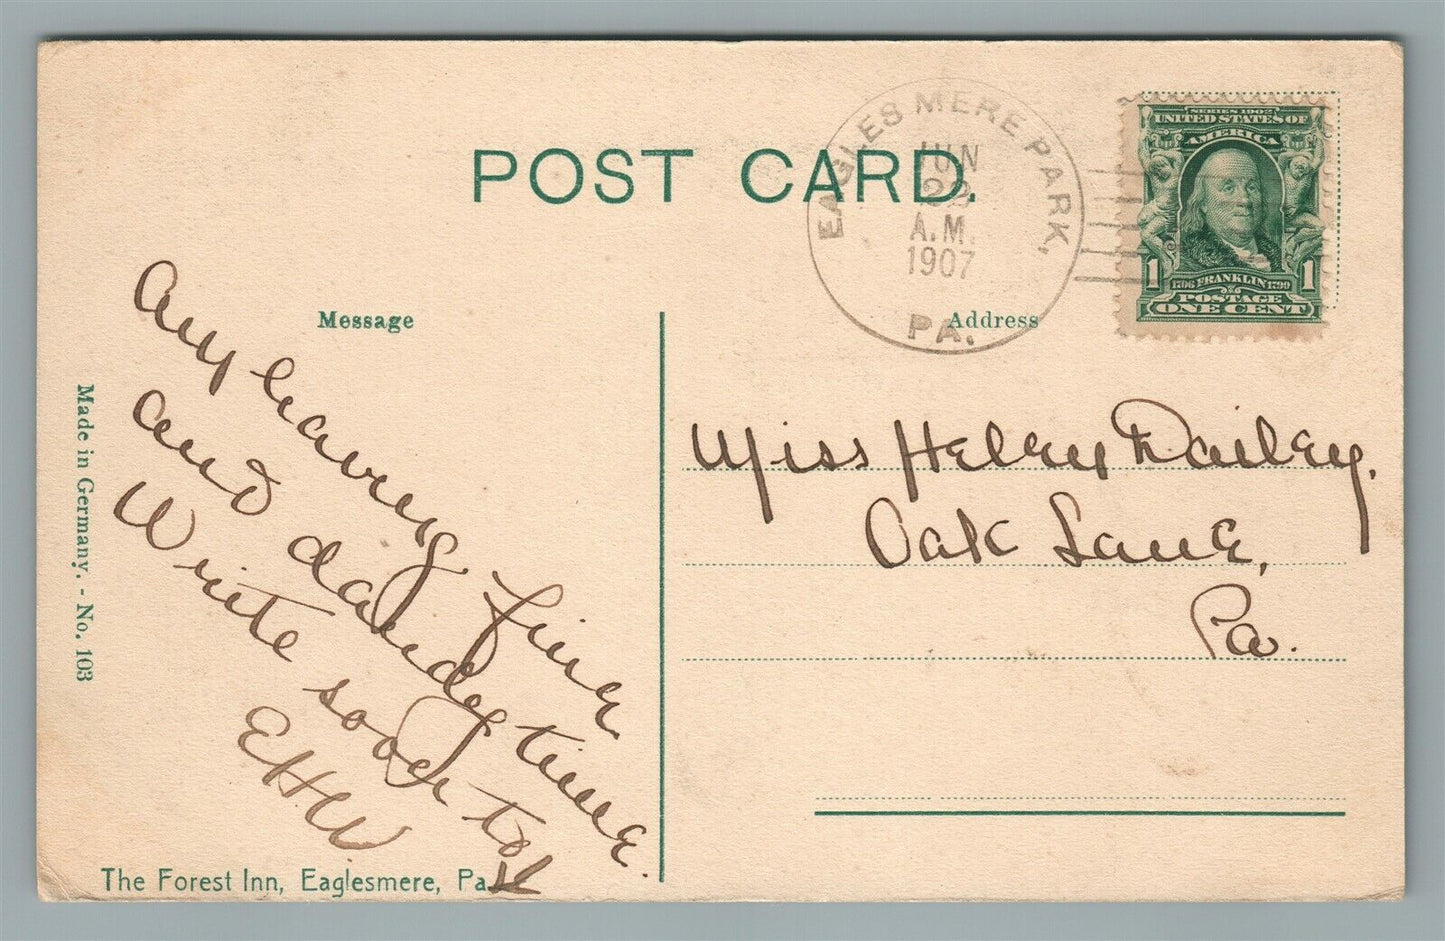 POST CARD.
EAGLES MERE PARK,
JUN
A.M.
1907
PA.
SERIES 1902
UNITED STATES OF
AMERICA
1 1706 FRANKLIN 1790 1
POSTAGE
ONE CENT
Message
Address
Made in Germany. - No. 103
Am having fine
and dandy time.
Write soon to
EHW
Miss Helen Dailey,
Oak Lane,
Pa.
The Forest Inn, Eaglesmere, Pa.